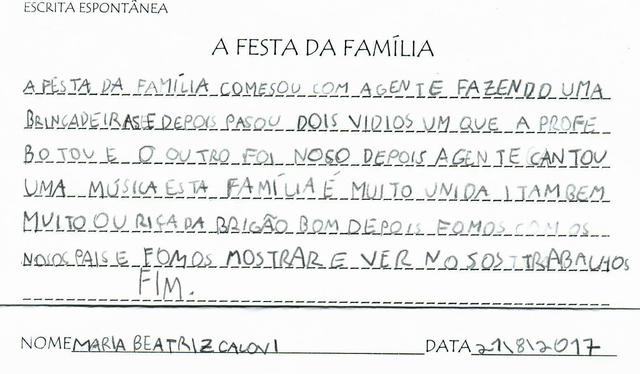 ESCRITA ESPONTÂNEA
A FESTA DA FAMÍLIA
A FESTA DA FAMÍLIA COMESOU COM AGENTE FAZENDO UMA
BRINCADEIRAS E DEPOIS PASOU DOIS VIDIOS UM QUE A PROFE
BOTOU E O OUTRO FOI NOSO DEPOIS AGENTE CANTOU
UMA MÚSICA ESTA FAMÍLIA É MUITO UNIDA I TAMBEM
MUITO OURIÇADA BRIGÃO BOM DEPOIS FOMOS COM OS
NOSOS PAIS E FOMOS MOSTRAR E VER NOSOS TRABALHOS
FIM.
NOME MARIA BEATRIZ CALOVI DATA 21\8\2017